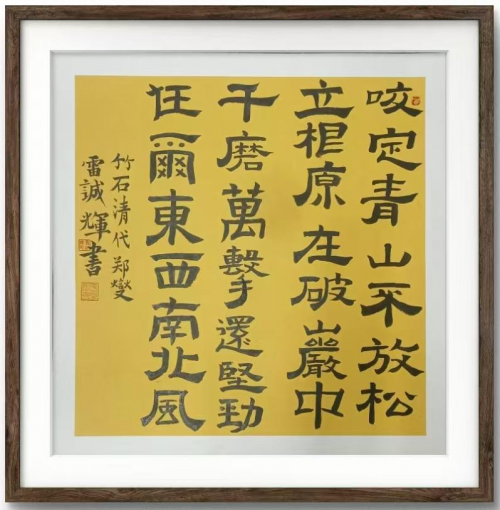 咬定青山不放松
立根原在破巖中
千磨萬擊還堅勁
任爾東西南北風
竹石清代郑燮
雷誠輝書